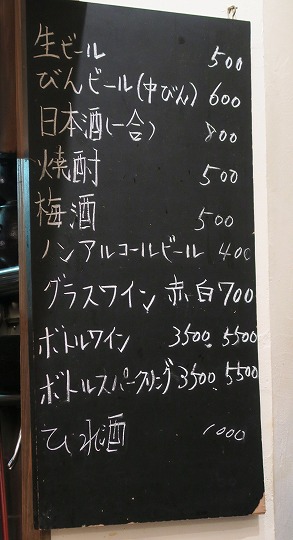 生ビール 500
びんビール(中びん) 600
日本酒(一合) 800
焼酎 500
梅酒 500
ノンアルコールビール 400
グラスワイン 赤白 700
ボトルワイン 3500, 5500
ボトルスパークリング 3500, 5500
ひれ酒 1000